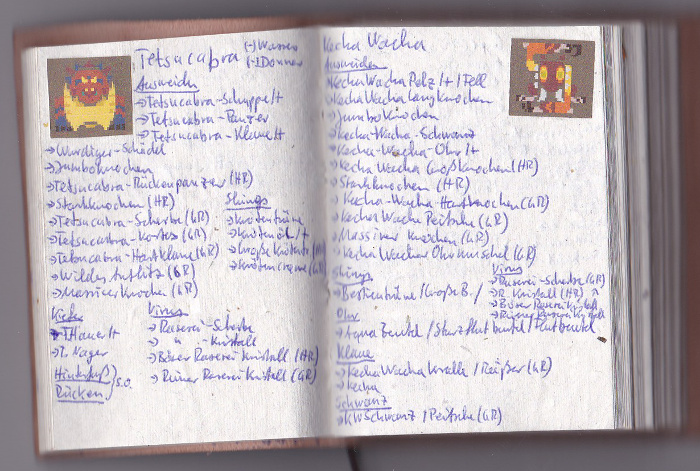 Tetsucabra (-) Wasser
(-) Donner
Ausweiden
→ Tetsucabra-Schuppe/+
→ Tetsucabra-Panzer
→ Tetsucabra-Klaue/+
→ Würdiger-Schädel
→ Jumboknochen
→ Tetsucabra-Rückenpanzer (HR)
→ Starkknochen (HR)
→ Tetsucabra-Scherbe (GR)
→ Tetsucabra-Kortex (GR)
→ Tetsucabra-Hartklaue (GR)
→ Wildes Antlitz (GR)
→ Massiver Knochen (GR)
Shinys
→ Krötenträne
→ Krötenöl/+
→ Große Krötentr.
Kiefer
→ T. Hauer/+
→ T. Nager
Hinterkopf
Rücken } s.o.
Virus
→ Raserei-Scherbe
→ " -Kristall
→ Böser Raserei Kristall (HR)
→ Reiner Raserei Kristall (GR)
Kecha Wacha
Ausweiden
Kecha Wacha Pelz/+ / Fell
Kecha Wacha Langknochen
→ Jumboknochen
→ Kecha-Wacha-Schwanz
→ Kecha-Wacha-Ohr/+
→ Kecha Wacha Großknochen (HR)
→ Starkknochen (HR)
→ Kecha-Wacha-Hartknochen (GR)
→ Kecha Wacha Peitsche (GR)
→ Massiver Knochen (GR)
→ Kecha Wacha Ohrmuschel (GR)
Shinys
→ Bestienträne / Große B. /
Virus
→ Raserei-Scherbe (GR)
→ R. Kristall (HR)
→ Böser Raserei Kristall
→ Reiner Raserei Kristall
Ohr
→ Aqua Beutel / Sturzflutbeutel / Flutbeutel
Klaue
→ Kecha Wacha Kralle / Reißer (GR)
→ Kecha
Schwanz
→ KW Schwanz / Peitsche (GR)